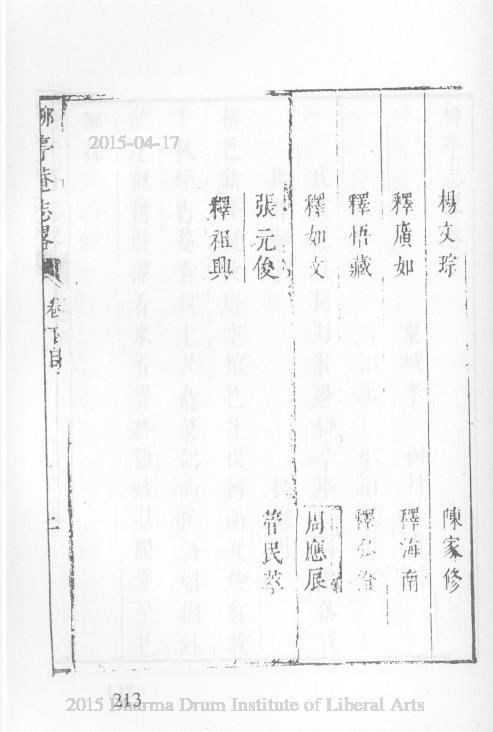 2015-04-17
楊文琮 陳家修
釋廣如 釋海南
釋悟藏 釋弘澄
釋如文 周應展
張元俊 管民莘
釋祖興
柳亭菴志畧 卷下目 二
213
2015 Dharma Drum Institute of Liberal Arts